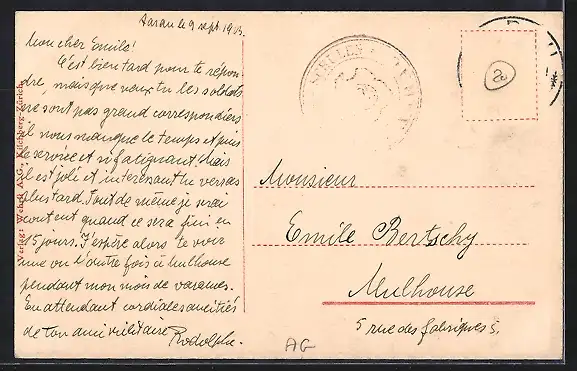 Aarau le 9 sept. 1913.
Mon cher Emile!
C'est bien tard pour te répon-
dre, mais que veux tu les soldats
ne sont pas grand correspondiers
il nous manque le temps et puis
le service est si fatiguant! Mais
il est joli et interessant tu verras
plus tard. Tout de même je serai
content quand ce sera fini en
15 jours. J'espère alors te voir
une ou l'autre fois à Mulhouse
pendant mon mois de vacances.
En attendant cordiales amitiés
de ton ami militaire Rodolphe.
Verlag: Wehrli A.G., Kilchberg-Zürich
Monsieur
Emile Bertschy
Mulhouse
5 rue des fabriques 5.
AG